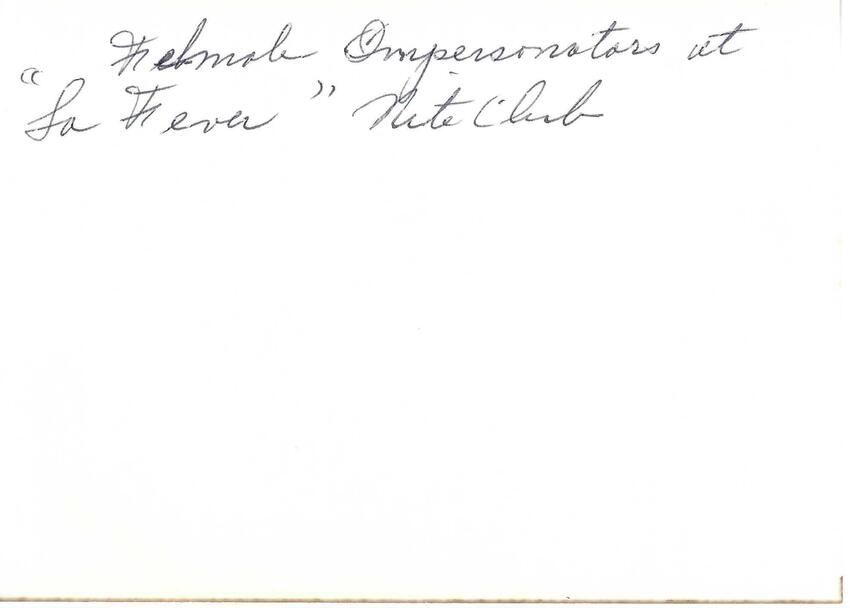 Fehmale Impersonators at
"La Fever" Nite Club